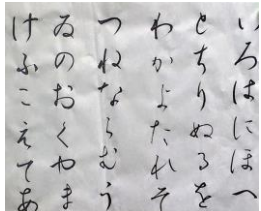 いろはにほへ
とちりぬるを
わかよたれそ
つねならむう
ゐのおくやま
けふこえてあ